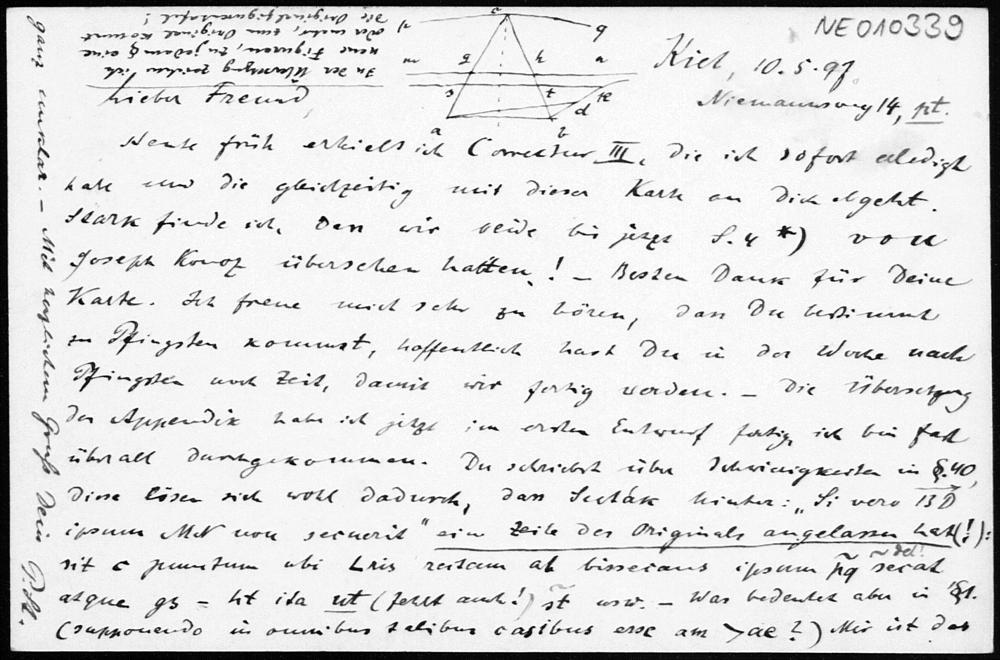 NE010339
Kiel, 10.5.97.
Niemannsweg 14, pt.
In der Übersetzung zeichne ich
neue Figuren, zu jedem § eine
oder mehr, zum Original kommt
die Originalfigurentafel!
Lieber Freund,
Heute früh erhielt ich Correktur III, die ich sofort erledigt
habe und die gleichzeitig mit dieser Karte an Dich abgeht.
Stark finde ich, dass wir beide bis jetzt S. 4 *) von
Joseph Konez übersehen hatten! – Besten Dank für Deine
Karte. Ich freue mich sehr zu hören, dass Du bestimmt
zu Pfingsten kommst, hoffentlich hast Du in der Woche nach
Pfingsten noch Zeit, damit wir fertig werden. – Die Übersetzung
des Appendix habe ich jetzt im ersten Entwurf fertig, ich bin fast
überall durchgekommen. Du schriebst über Schwierigkeiten in §. 40,
diese lösen sich wohl dadurch, dass Suták hinter: „Si vero BD
ipsum MN non secuerit" ein Zeile des Originals ausgelassen hat(!):
sit c punctum ubi Lris rectam ab bissecans ipsum pq secat
atque gs = ht ita ut (fehlt auch!) st usw. – Was bedeutet aber in §1.
(supponendo in omnibus talibus casibus esse am > ae?) Mir ist das
ganz unklar. – Mit herzlichem Gruß Dein P. St.